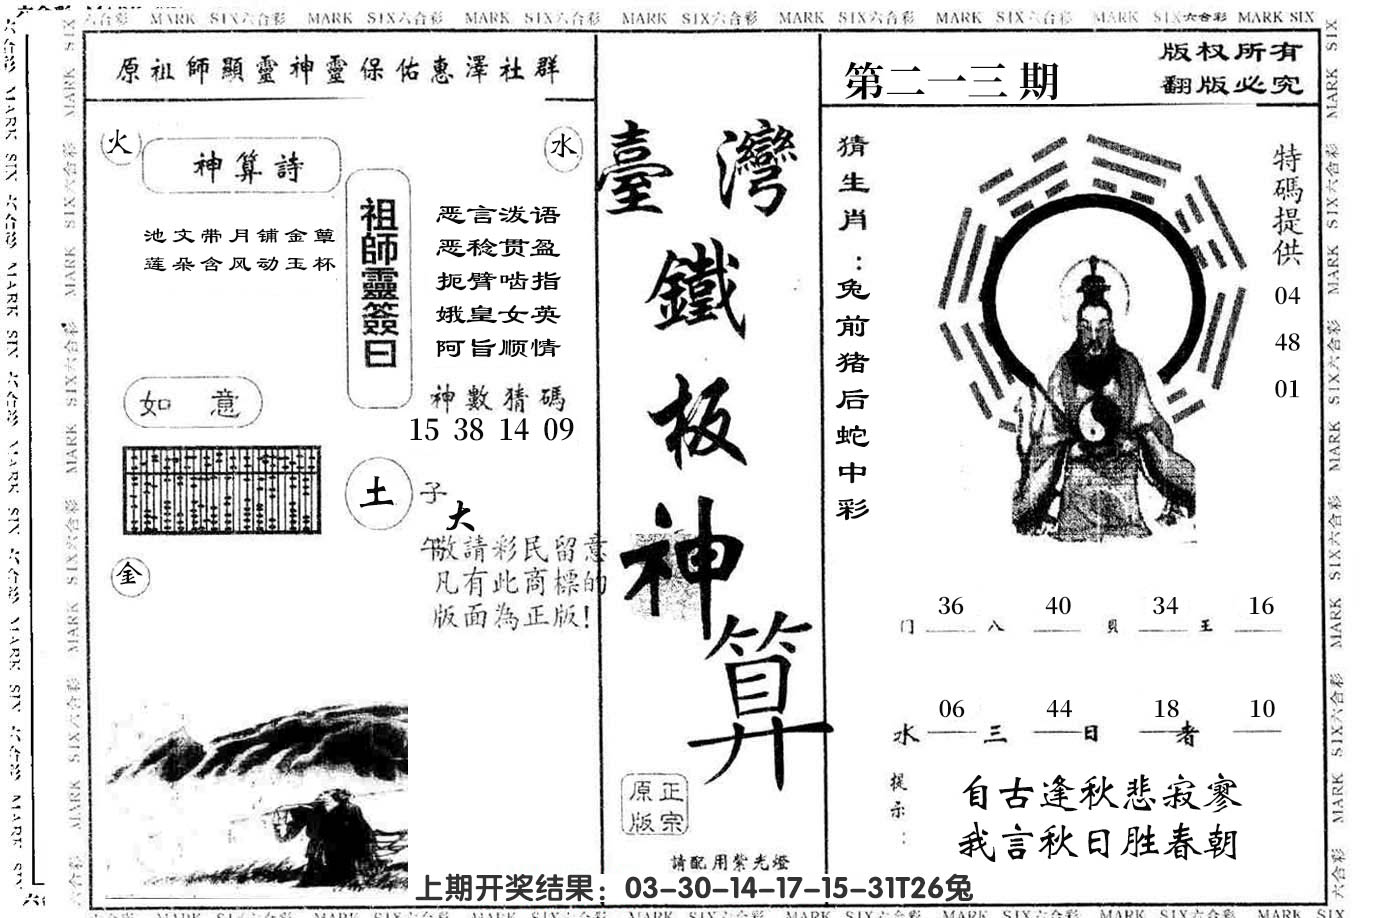 MARK SIX六合彩 MARK SIX六合彩 MARK SIX六合彩 MARK SIX六合彩 MARK SIX六合彩 MARK SIX六合彩 MARK SIX六合彩 MARK SIX
原祖師顯靈神靈保佑惠澤社群
火
水
神算詩
池文带月铺金簟
莲朵含风动玉杯
祖師靈簽曰
恶言泼语
恶稔贯盈
扼臂啮指
娥皇女英
阿旨顺情
神數猜碼
15 38 14 09
如意
土
子
大
午
敬請彩民留意
凡有此商標的
版面為正版!
金
臺灣
鐵
板
神
算
正宗
原版
請配用紫光燈
第二一三期
版权所有
翻版必究
猜生肖:兔前猪后蛇中彩
特碼提供
04
48
01
36 40 34 16
门 八 贝 王
06 44 18 10
水 三 日 者
提示:
自古逢秋悲寂寥
我言秋日胜春朝
上期开奖结果：03-30-14-17-15-31T26兔